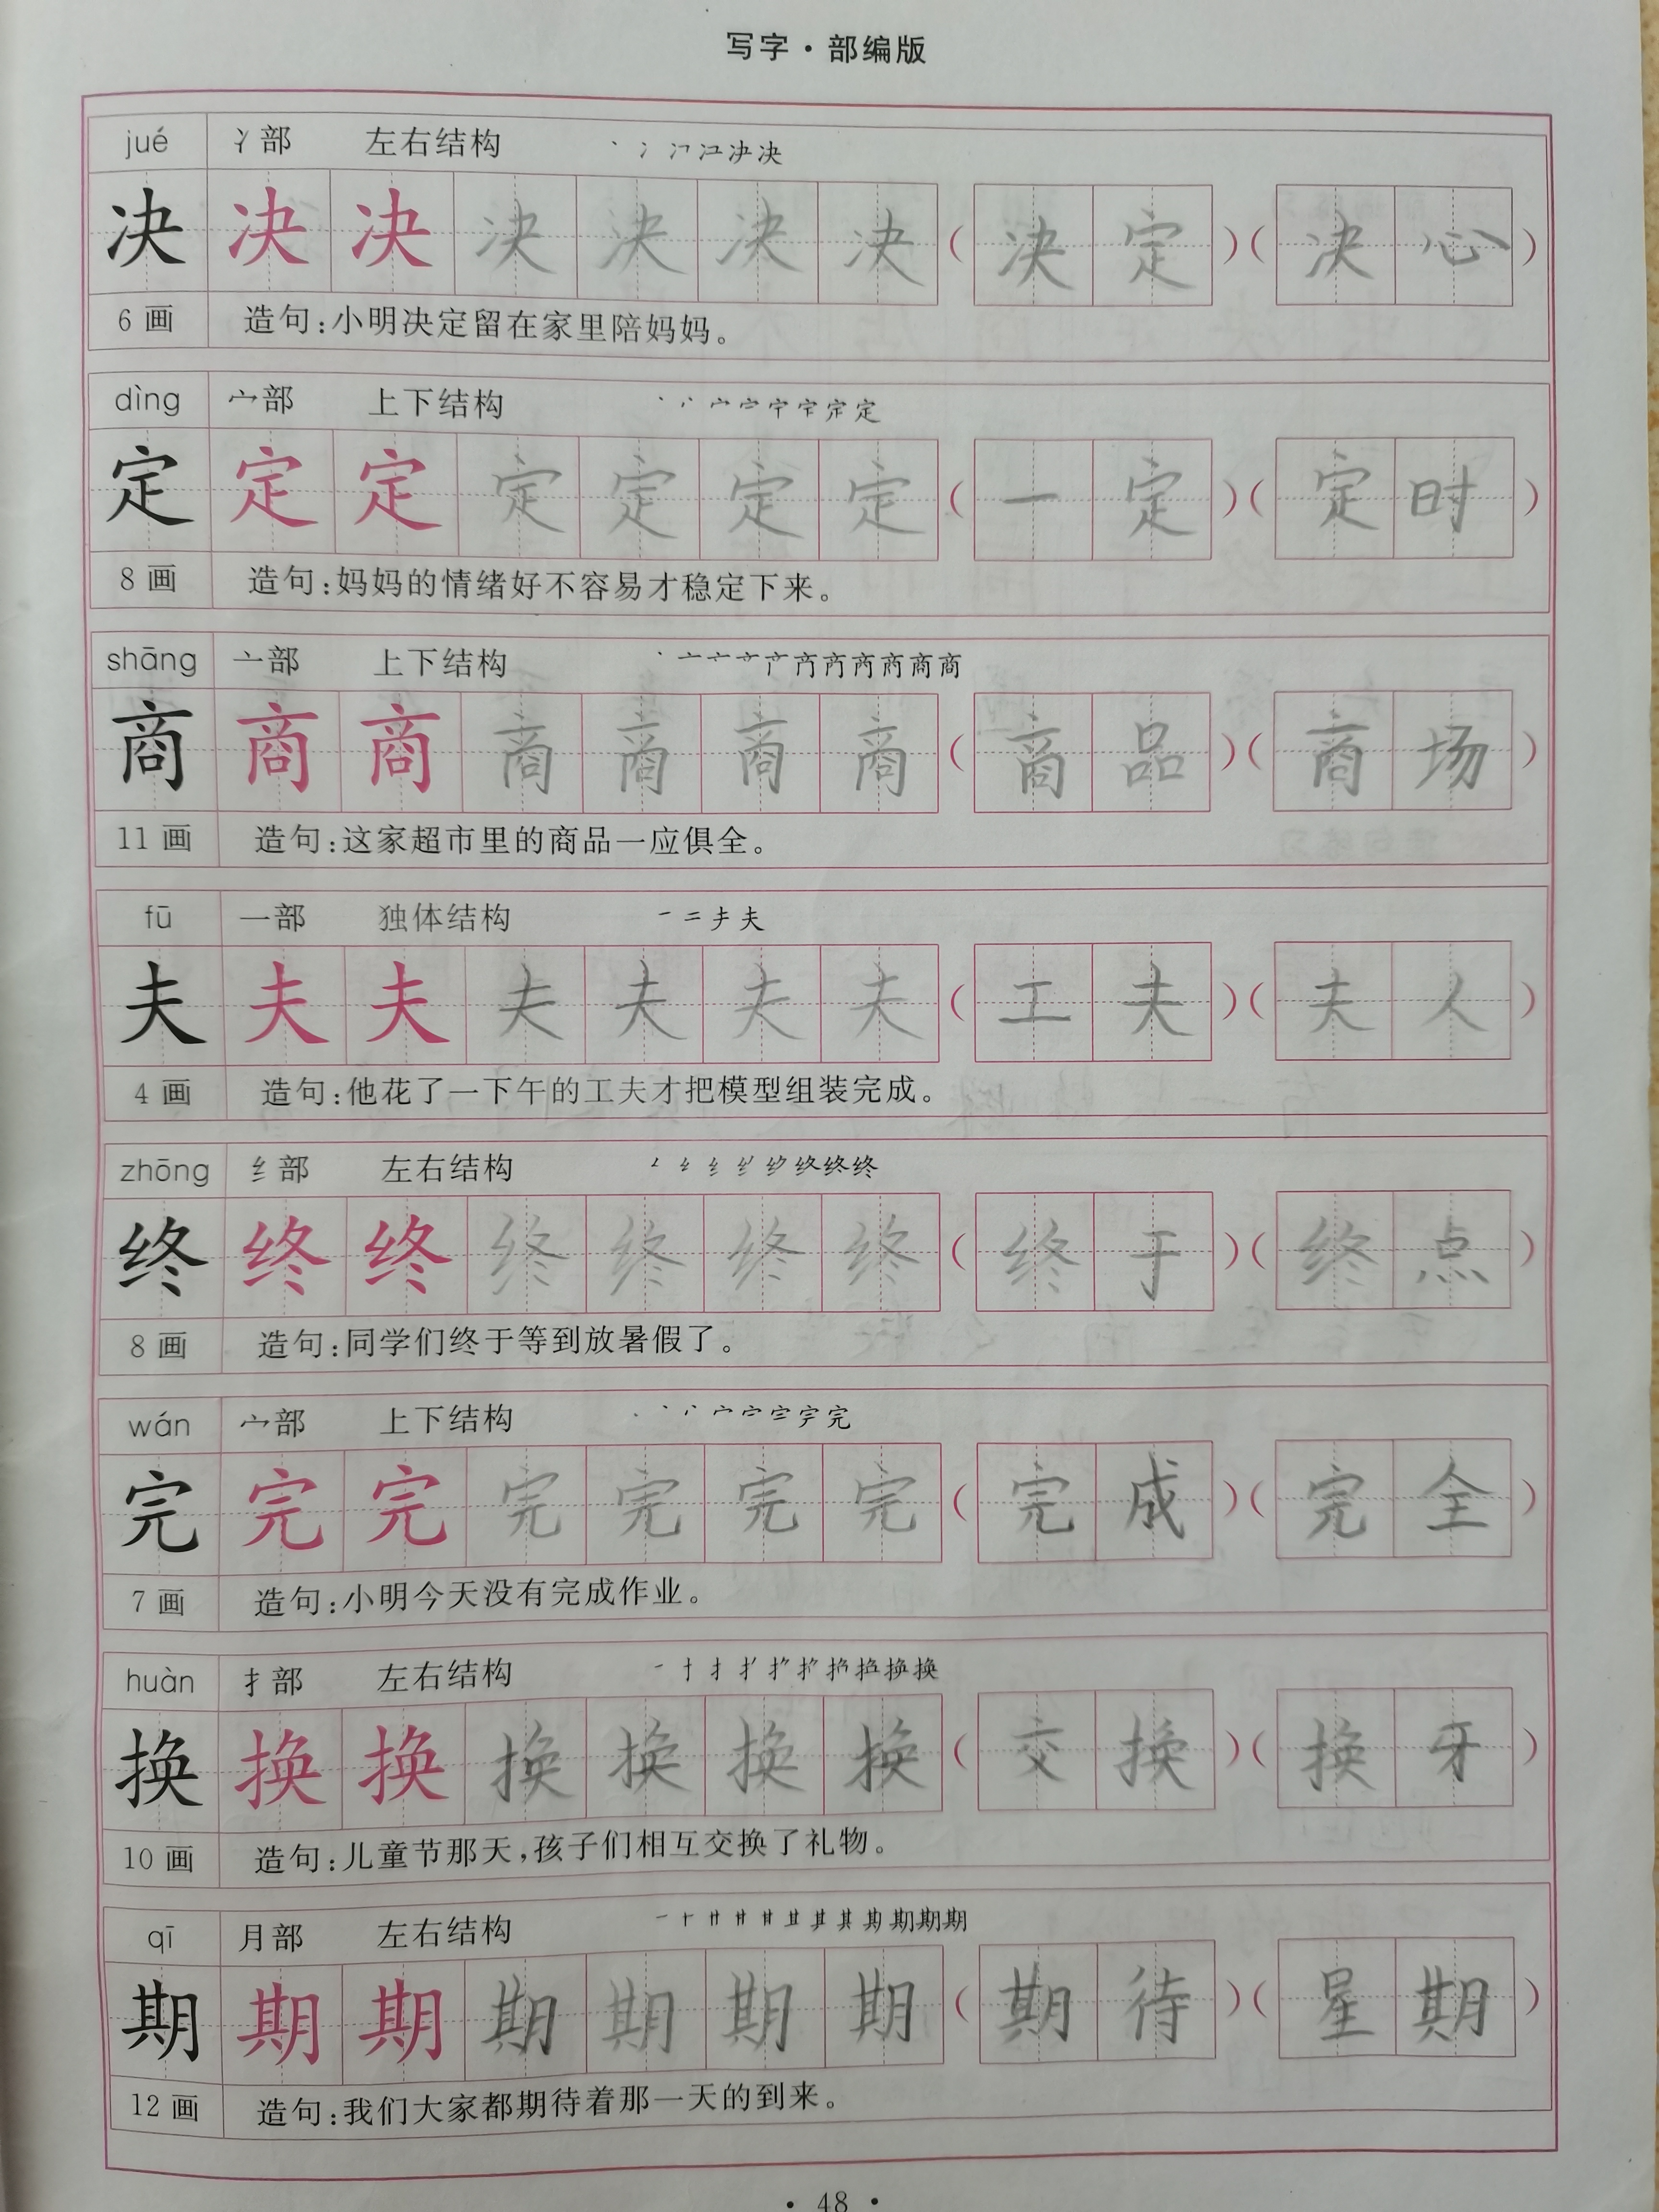 写字·部编版
jué 冫部 左右结构
决 决 决 决 决 决 决 (决定)(决心)
6画 造句:小明决定留在家里陪妈妈。
dìng 宀部 上下结构
定 定 定 定 定 定 定 (一定)(定时)
8画 造句:妈妈的情绪好不容易才稳定下来。
shāng 亠部 上下结构
商 商 商 商 商 商 商 (商品)(商场)
11画 造句:这家超市里的商品一应俱全。
fū 一部 独体结构 一 二 夫 夫
夫 夫 夫 夫 夫 夫 夫 (工夫)(夫人)
4画 造句:他花了一下午的工夫才把模型组装完成。
zhōng 纟部 左右结构
终 终 终 终 终 终 终 (终于)(终点)
8画 造句:同学们终于等到放暑假了。
wán 宀部 上下结构
完 完 完 完 完 完 完 (完成)(完全)
7画 造句:小明今天没有完成作业。
huàn 扌部 左右结构
换 换 换 换 换 换 换 (交换)(换牙)
10画 造句:儿童节那天,孩子们相互交换了礼物。
qī 月部 左右结构
期 期 期 期 期 期 期 (期待)(星期)
12画 造句:我们大家都期待着那一天的到来。
·48·